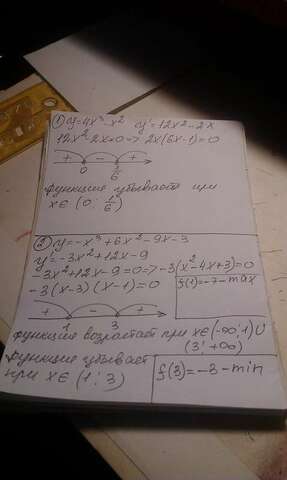 ① y=4x³-x² y'=12x²-2x
12x²-2x=0=>2x(6x-1)=0
+ - +
0 1/6
функция убывает при
x∈(0; 1/6)
② y=-x³+6x²-9x-3
y'=-3x²+12x-9
-3x²+12x-9=0=>-3(x²-4x+3)=0
-3(x-3)(x-1)=0
f(1)=-7-max
+ - +
1 3
функция возрастает при x∈(-∞;1)∪
(3;+∞)
функция убывает
при x∈(1;3)
f(3)=-3-min